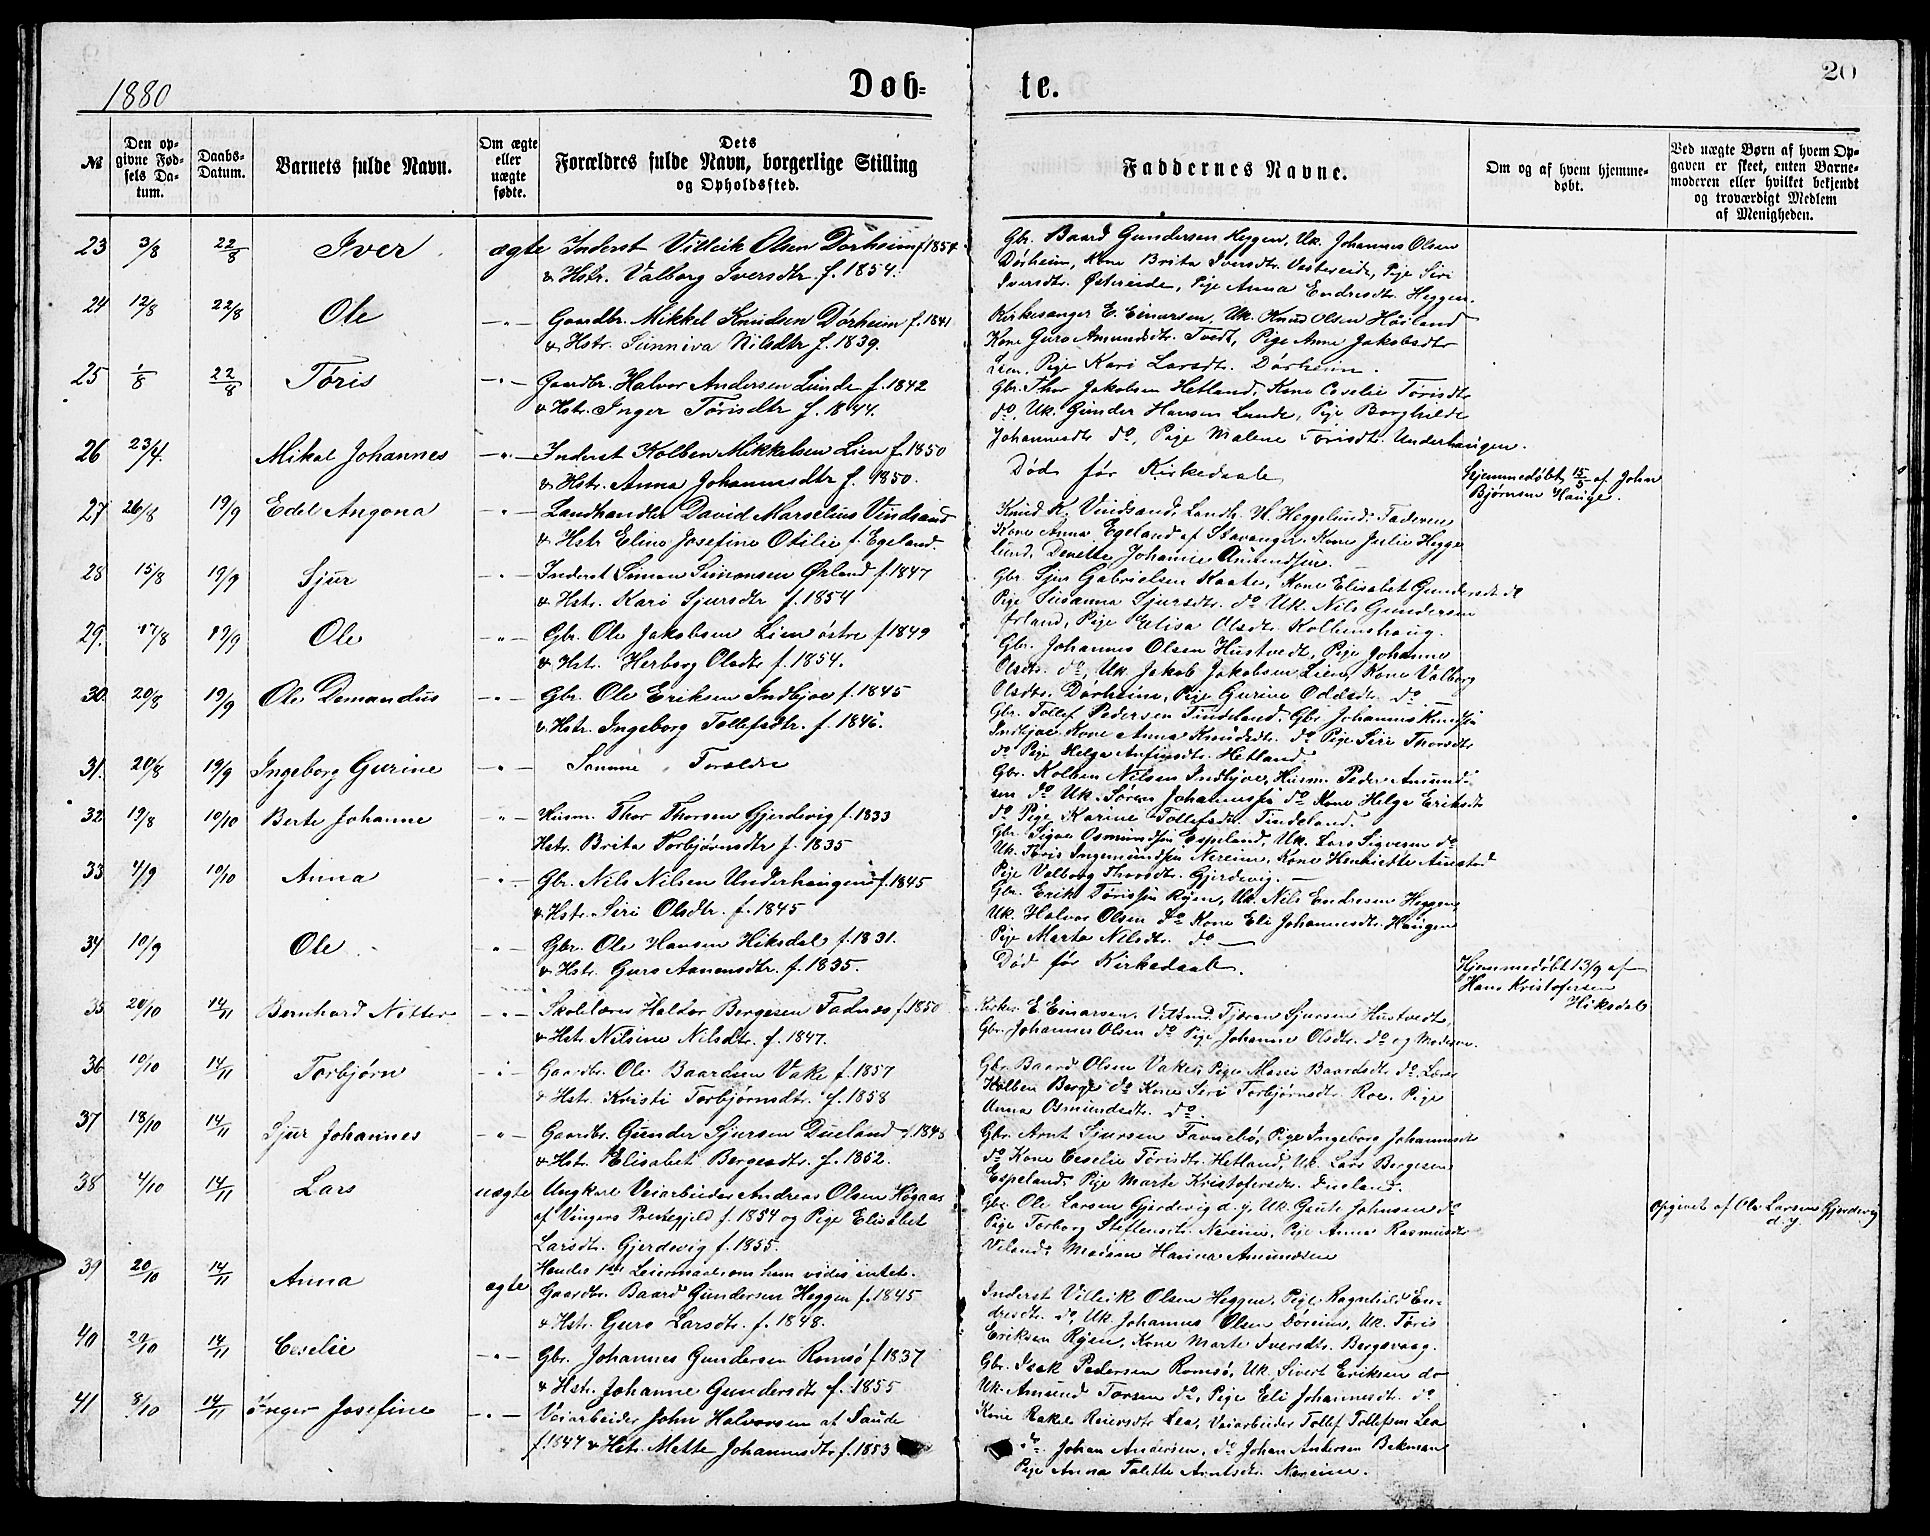 1880
Døb-
te.
20
№
Den op-
givne Fød-
sels Da-
tum.
Daabs-
Datum.
Barnets fulde Navn.
Om ægte
eller
uægte
fødte.
Dets
Forældres fulde Navn, borgerlige Stilling
og Opholdssted.
Faddernes Navne.
Om og af hvem hjemme-
døbt.
Ved uægte Børn af hvem Op-
gaven er skeet, enten Barne-
moderen eller hvilket bekjendt
og troværdigt Medlem
af Menigheden.
23 3/8 22/8 Iver ægte Inderst Villeik Olsen Dørheim f. 1854
& Hstr. Valborg Iversdtr. f. 1854.
Gbr. Baard Gundersen Heggen, Uk. Johannes Olsen
Dørheim, Kone Brita Iversdtr. Vestereide, Pige Siri
Iversdtr. Østereide, Pige Anna Endresdtr. Heggen.
24 12/8 22/8 Ole -"- Gaardbr. Mikkel Knudsen Dørheim f. 1841
& Hstr. Sunniva Nilsdtr f. 1839.
Kirkesanger E. Einarsen, Uk. Knud Olsen Høiland
Kone Guro Amundsdtr. Tvedt, Pige Anne Jakobsdtr
Lien, Pige Kari Larsdt. Dørheim.
25 1/8 22/8 Tøris -"- Gaardbr. Halvor Andersen Lunde f. 1842
& Hstr. Inger Tørisdtr f. 1844.
Gbr. Thor Jakobsen Hetland, Kone Ceselie Tørisdtr
do, Uk. Gunder Hansen Lunde, Pige Borghilde
Johannesdtr do, Pige Malene Tørisdtr. Underhaugen.
26 23/4. Mikal Johannes -"- Inderst Kolben Mikkelsen Lien f. 1850
& Hstr. Anna Johannesdtr f. 1850.
Død før Kirkedaab
Hjemmedøbt 15/5 af John
Bjørnsen Hauge.
27 26/8 19/9 Edel Angona -"- Landhandler David Marselius Vindsand
& Hstr Eline Josefine Otilie f. Egeland.
Knud K. Vindsand, Landh. H. Heggelund, Faderen
Kone Anna Egeland af Stavanger, Kone Julie Hegge
lund, Denette Johanne Amundsen.
28 15/8 19/9 Sjur -"- Inderst Simon Simonsen Ørland f. 1847
& Hstr. Kari Sjursdtr f. 1854
Gbr. Sjur Gabrielsen Kaate, Kone Elisabet Gundersdt. do
Pige Susanna Sjursdtr. do Uk. Nils Gundersen
Ørland, Pige Elisa Olsdtr. Kolbenshaug.
29. 17/8 19/9 Ole -"- Gbr. Ole Jakobsen Lien østre f 1849
& Hstr. Herborg Olsdtr f. 1854.
Gbr. Johannes Olsen Hustvedt, Pige Johanne
Olsdtr. do, Uk. Jakob Jakobsen Lien, Kone Valborg
Olsdtr. Dørheim, Pige Gurine Oddsdtr. do
30. 20/8 19/9 Ole Demandus -"- Gbr. Ole Eriksen Indbjoe f. 1845
& Hstr. Ingeborg Tollefsdtr. f. 1846.
Gbr. Tollef Pedersen Tindeland, Gbr Johannes Knudsen
Indbjoe, Kone Anna Knudsdtr. do Pige Siri Thorsdtr
do Pige Helga Anfinsdtr. Hetland.
31. 20/8 19/9 Ingeborg Gurine -"- Samme Foreldre
Gbr. Kolben Nilsen Indbjoe, Husm. Peder Amund-
sen do Uk. Søren Johannessen do Kone Helga Eriksdt
do Pige Karine Tollefsdtr. Tindeland.
32 19/8 10/10 Berte Johanne -"- Husm. Thor Thorsen Gjerdevig f. 1833
Hstr. Brita Torbjørnsdtr f. 1835
Gbr. Sigve Osmundsen Espeland, Uk. Lars Sigvesen do
Uk. Tøris Ingemundsen Nereim, Kone Henriette Austad
Pige Valborg Thorsdtr. Gjerdevig.
33 4/9 10/10 Anna -"- Gbr. Nils Nilsen Underhaugen f. 1845
& Hstr. Siri Olsdtr. f. 1845
Gbr. Erik Tørissen Røen, Uk. Nils Endresen Heggen,
Uk. Halvor Olsen do Kone Eli Johannesdtr. Haugen
Pige Marta Nilsdtr. do
34 10/9 Ole -"- Gbr. Ole Hansen Hiksdal f. 1831.
& Hstr. Guro Aanensdtr. f. 1835.
Død før Kirkedaab.
Hjemmedøbt 13/9 af
Hans Kristofersen
Hiksdal
35 20/10 14/11 Bernhard Nitter -"- Skolelærer Haldor Bergesen Fadnæs f. 1850
& Hstr Nilsine Nilsdtr. f. 1847.
Kirkes. E. Einarsen, Tjeran Sjursen Hustvedt,
Gbr. Johannes Olsen do Pige Johanne Olsdtr. do og Moderen.
36 10/10 14/11 Torbjørn -"- Gaardbr. Ole Baardsen Vake f. 1857
& Hstr. Kristi Torbjørnsdtr. f. 1858
Gbr. Baard Olsen Vake, Pige Mari Baardsdtr do, Lærer
Kolben Berge do Kone Siri Torbjørnsdtr. Roe, Pige
Anna Osmundsdtr. do.
37 18/10 14/11 Sjur Johannes -"- Gaardbr. Gunder Sjursen Dueland f. 1848
& Hstr. Elisabet Bergesdtr. f. 1852.
Gbr. Arnt Sjursen Favnebø, Pige Ingeborg Johannesdt
do Kone Ceselie Tørisdtr. Hetland, Uk. Lars Bergesen
Espeland, Pige Marte Kristofersdtr. Dueland.
38 4/10 14/11 Lars uægte Ungkarl Veiarbeider Andreas Olsen Høgaas
af Vingers Prestegjeld f. 1854 og Pige Elisabet
Larsdtr. Gjerdevig f. 1855.
Hendes 1ste Leiermaal, om ham vides intet.
Gbr. Ole Larsen Gjerdevig d. y. Uk. Gaute Johnsen do
Pige Torborg Steffensdtr. Nereim, Pige Anna Rasmusdtr
Veland, Madam Hanna Amundsen
Opgivet af Ole Larsen Gjerdevig
d. y.
39 20/10 14/11 Anna ægte Gaardbr. Baard Gundersen Heggen f. 1845
& Hstr. Guro Larsdtr. f. 1848.
Inderst Villeik Olsen Heggen, Pige Ragnhild En-
dresdtr. do, Uk Johannes Olsen Døreim, Uk. Tøris
Eriksen Røen, Kone Marte Iversdtr. Bergsvaag.
40 29/10 14/11 Ceselie -"- Gbr. Johannes Gundersen Romsø f 1837
& Hstr. Johanne Gundersdtr f. 1855
Gbr. Isak Pedersen Romsø, Uk. Sivert Eriksen do
Uk. Amund Torsen do, Pige Eli Johannesdtr. do
41 8/10 14/11 Inger Josefine -"- Veiarbeider John Halvorsen af Saude
f. 1847 & Hstr. Mette Johannesdtr f. 1853
Kone Rakel Reiersdtr Lea, Veiarbeider Tollef Tollefsen Lea
do Johan Andersen, do Johan Andersen Bekman
Pige Anna Talette Arntsdtr. Nereim.